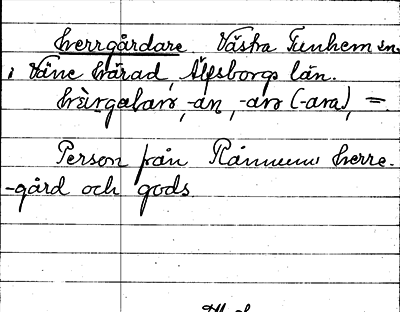 Herrgårdare Västra Tunhem sn.
i Väne härad, Älfsborgs län.
-an, -ar (-ara), =
Person från Rånnums herre-
-gård och gods.